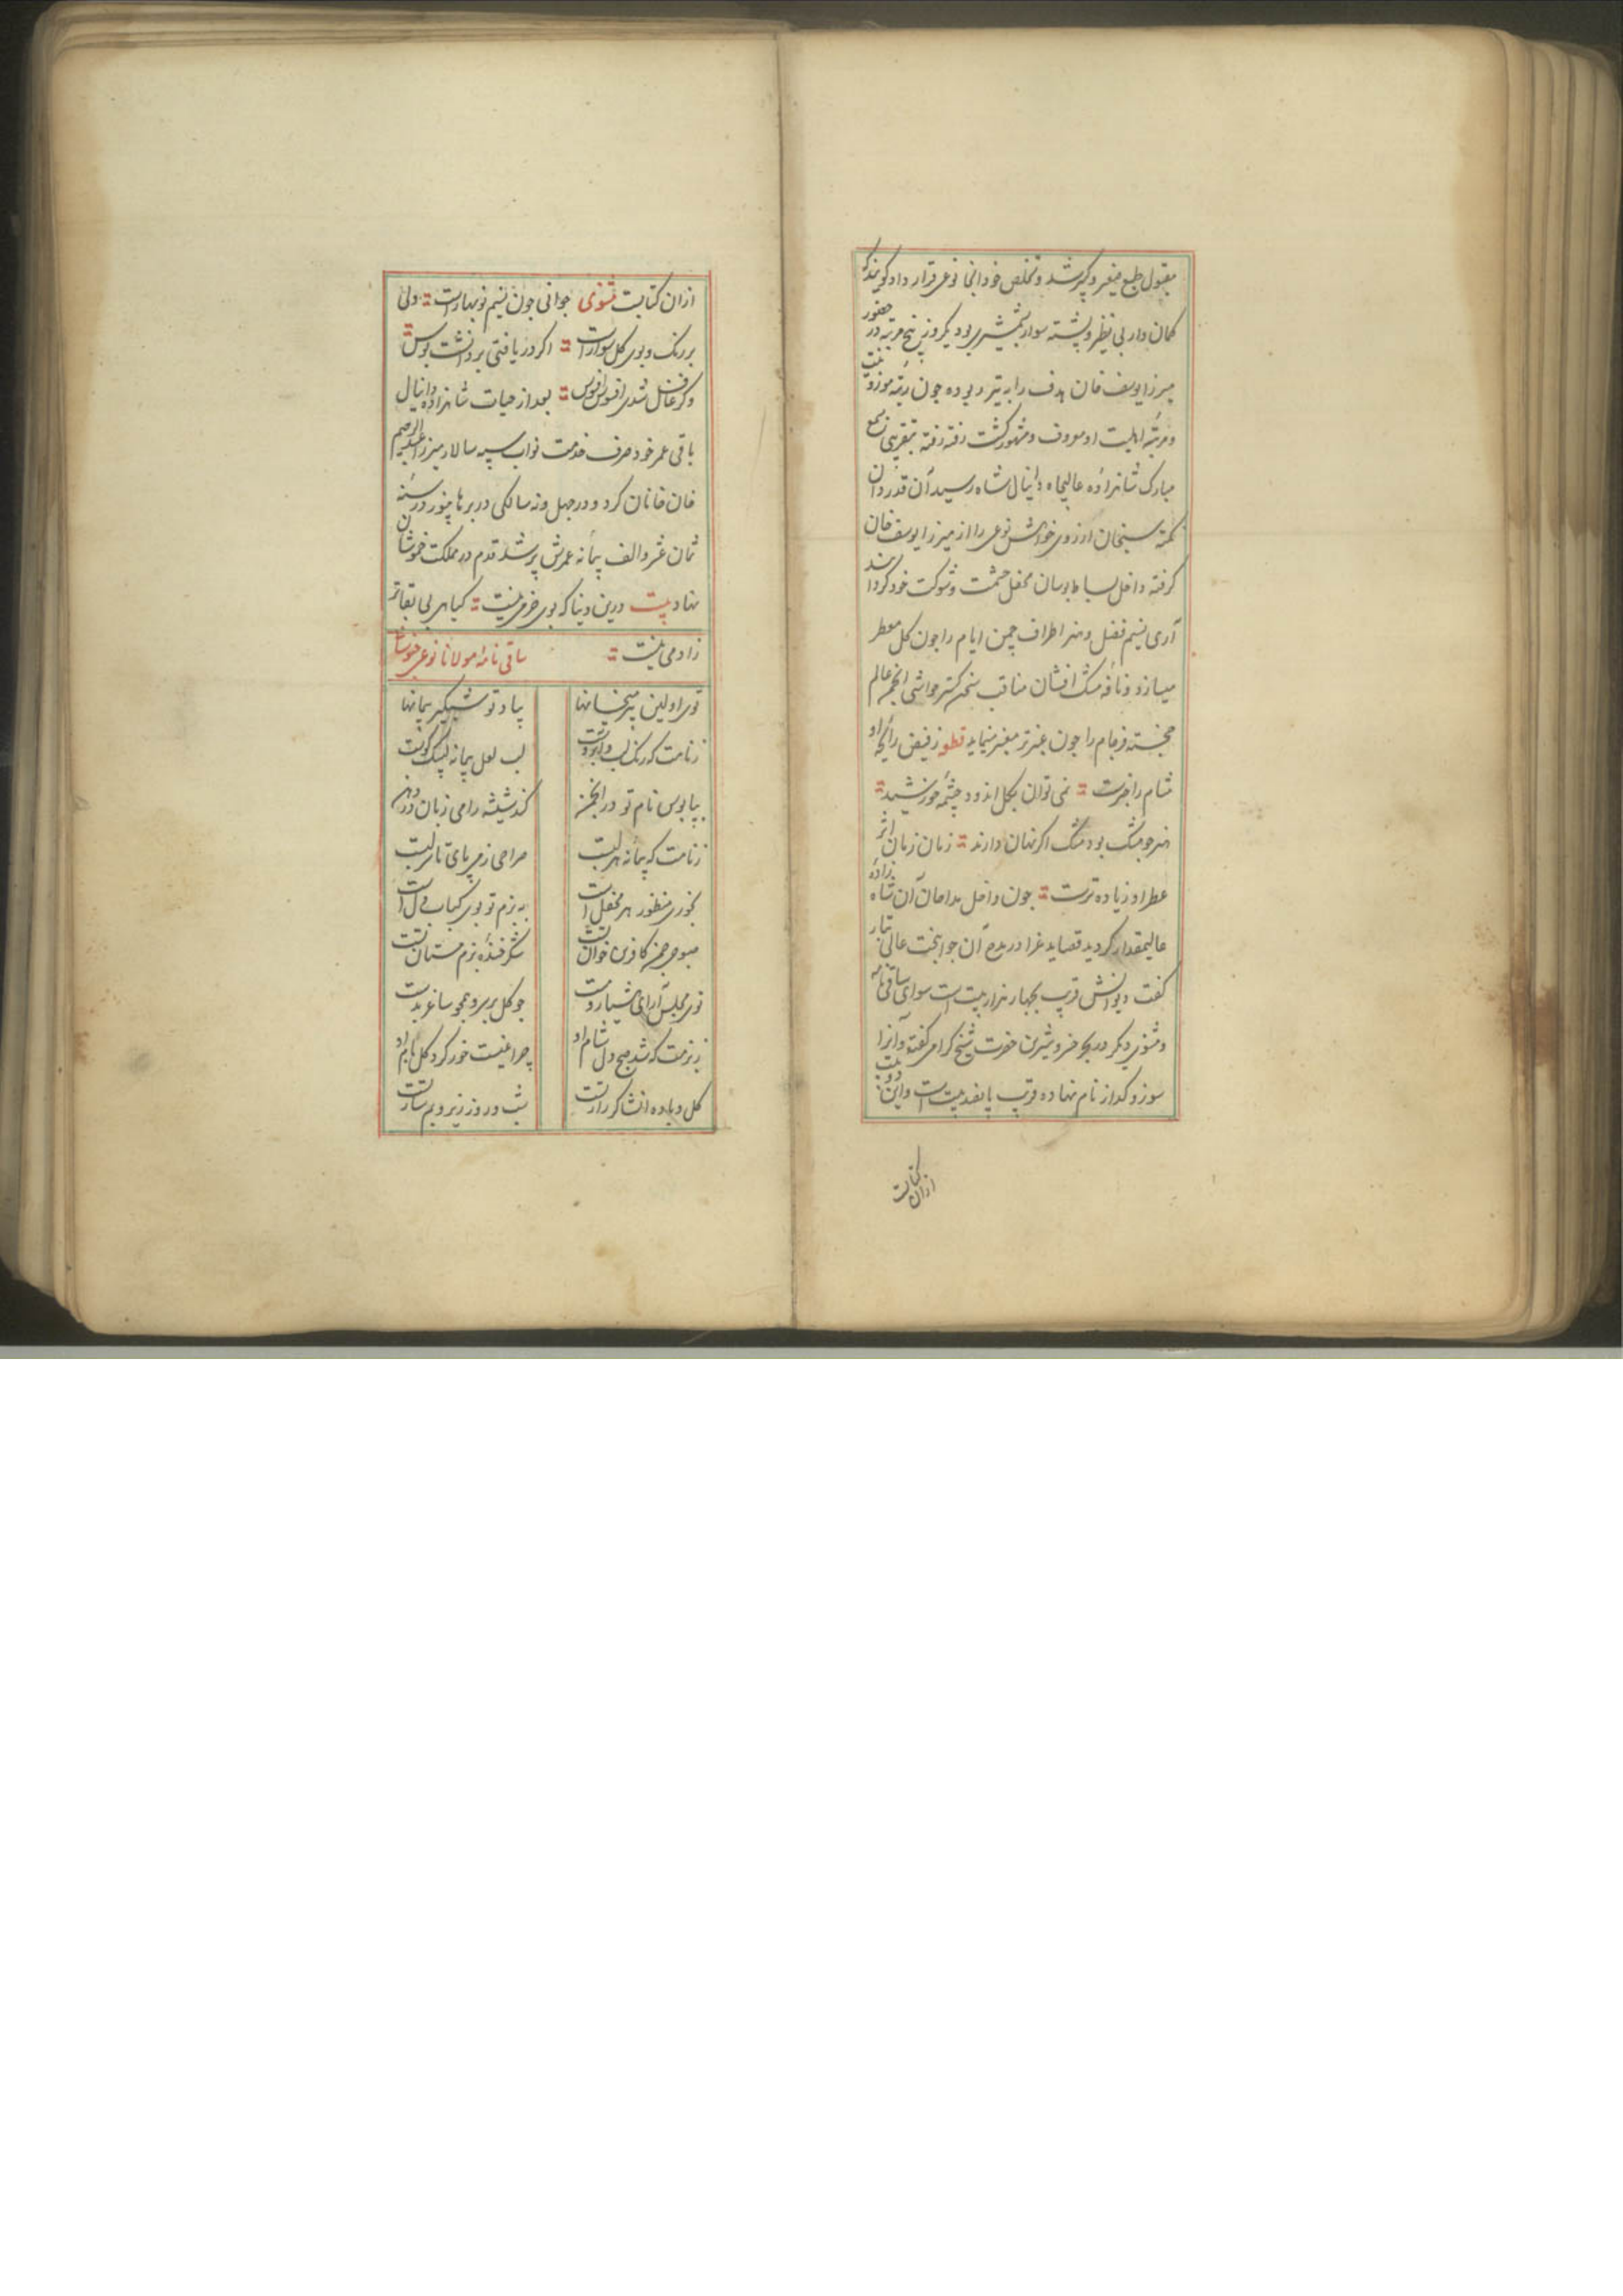 مقبول طبع صغیر و کبیر شد و تخلص خود انجا نوعی قرار داد کویند که
کمان دار بی نظیر و پشته سوار شمشیری بود یکروز پنج مرتبه در حضور
میرزا یوسف خان هدف را به تیر دیده چون رتبه موزونیت
و مرتبه اهلیت او معروف و مشهور کشت رفته رفته بتقریبی بسمع
مبارک شاهزاده عالیجاه دانیال شاه رسید آن قدردان
نکته سنجان ارزوی خواهش نوعی را از میرزا یوسف خان
کرفته داخل بساط بوسان محفل حشمت و شوکت خود کردانید
آری نسیم فضل و هنر اطراف چمن ایام را چون کل معطر
میسازد و نافه مشک افشان مناقب سخن کستر حواشی انجمن عالم
خجسته فرجام را چون عنبر تر معنبر مینماید قطعه ز فیض رایحه او
مشام را خبرست نمی توان بکل اندود چشمه خورشید
هنر چو مشک بود مشک اکر نهان دارند زمان زمان اثر
عطر او زیاده ترست چون داخل مداحان آن شاه زاده
عالیمقدار کردید قصاید غرا در مدح آن جوانبخت عالی تبار
کفت دیوانش قریب بچهار هزار بیت است سوای ساقی نامه
و مثنوی دیکر در بحر خسرو شیرین حضرت شیخ کرامی کفته و آنرا
سوز و کداز نام نهاده قریب پانصد بیت است و این دو بیت
ازان کتابت
ازان کتابت مثنوی جوانی چون نسیم نوبهارست ولی
بر رنک و بوی کل سوارست اکر دریافتی بر دانشت بوس
وکر غافل شدی افسوس افسوس بعد از حیات شاهزاده دانیال
باقی عمر خود صرف خدمت نواب سپه سالار میرزا عبدالرحیم
خان خانان کرد و در چهل و نه سالکی در برهانپور در سنه
ثمان عشر و الف پیمانه عمرش پر شد قدم در مملکت خموشان
نهاد بیت درین دنیا که بوی خرمی نیست کیاهی بی بقاتر
زادمی نیست ساقی نامه مولانا نوعی خبوشانی
توی اولین پیر میخانها بیاد تو شبکیر پیمانها
ز نامت که رنک لب لب لعل پیمانه لبیک کوست
بپابوس نام تو در انجمن کند شیشه را می زبان در دهن
ز نامت که پیمانه هر لبست صراحی ز سر پای تا سر لبست
بخوری منظور هر محفل است به بزم تو بوی کباب دل است
صبوحی خوان تست شکر خنده بزم مستان تست
توی مجلس آرای هشیار و مست چو کل بر سر و همچو ساغر بدست
ز بزمت که شد صبح دل شام او چراغیست خور کرد کل نام او
کل و باده انشا کر راز تست شب و روز زیر و بم ساز تست